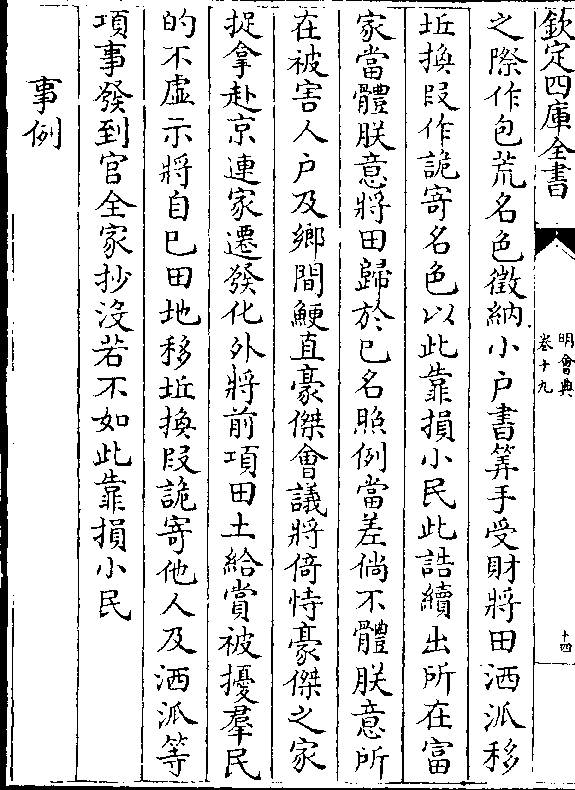 欽定四庫全書
明會典
卷十九
十四
之際作包荒名色徵納小户書筭手受財將田洒派移
坵換叚作詭寄名色以此靠損小民此誥續出所在富
家當體朕意將田歸於已名照例當差倘不體朕意所
在被害人户及鄉間鯁直豪傑會議將倚恃豪傑之家
捉拿赴京連家遷發化外將前項田土給賞被擾羣民
的不虚示將自已田地移坵換叚詭寄他人及洒派等
項事發到官全家抄没若不如此靠損小民
事例